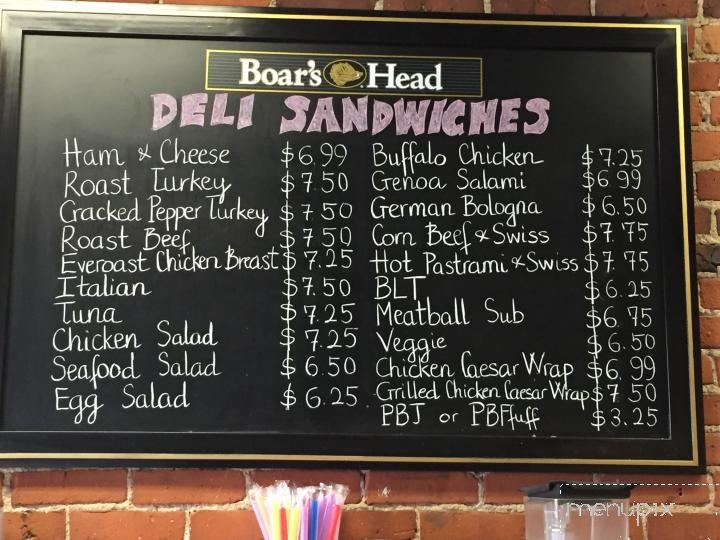 Boar's Head
DELI SANDWICHES
Ham & Cheese $6.99
Roast Turkey $7.50
Cracked Pepper Turkey $7.50
Roast Beef $7.50
Everoast Chicken Breast $7.25
Italian $7.50
Tuna $7.25
Chicken Salad $7.25
Seafood Salad $6.50
Egg Salad $6.25
Buffalo Chicken $7.25
Genoa Salami $6.99
German Bologna $6.50
Corn Beef & Swiss $7.75
Hot Pastrami & Swiss $7.75
BLT $6.25
Meatball Sub $6.75
Veggie $6.50
Chicken Caesar Wrap $6.99
Grilled Chicken Caesar Wrap $7.50
PBJ or PBFluff $3.25
menupix